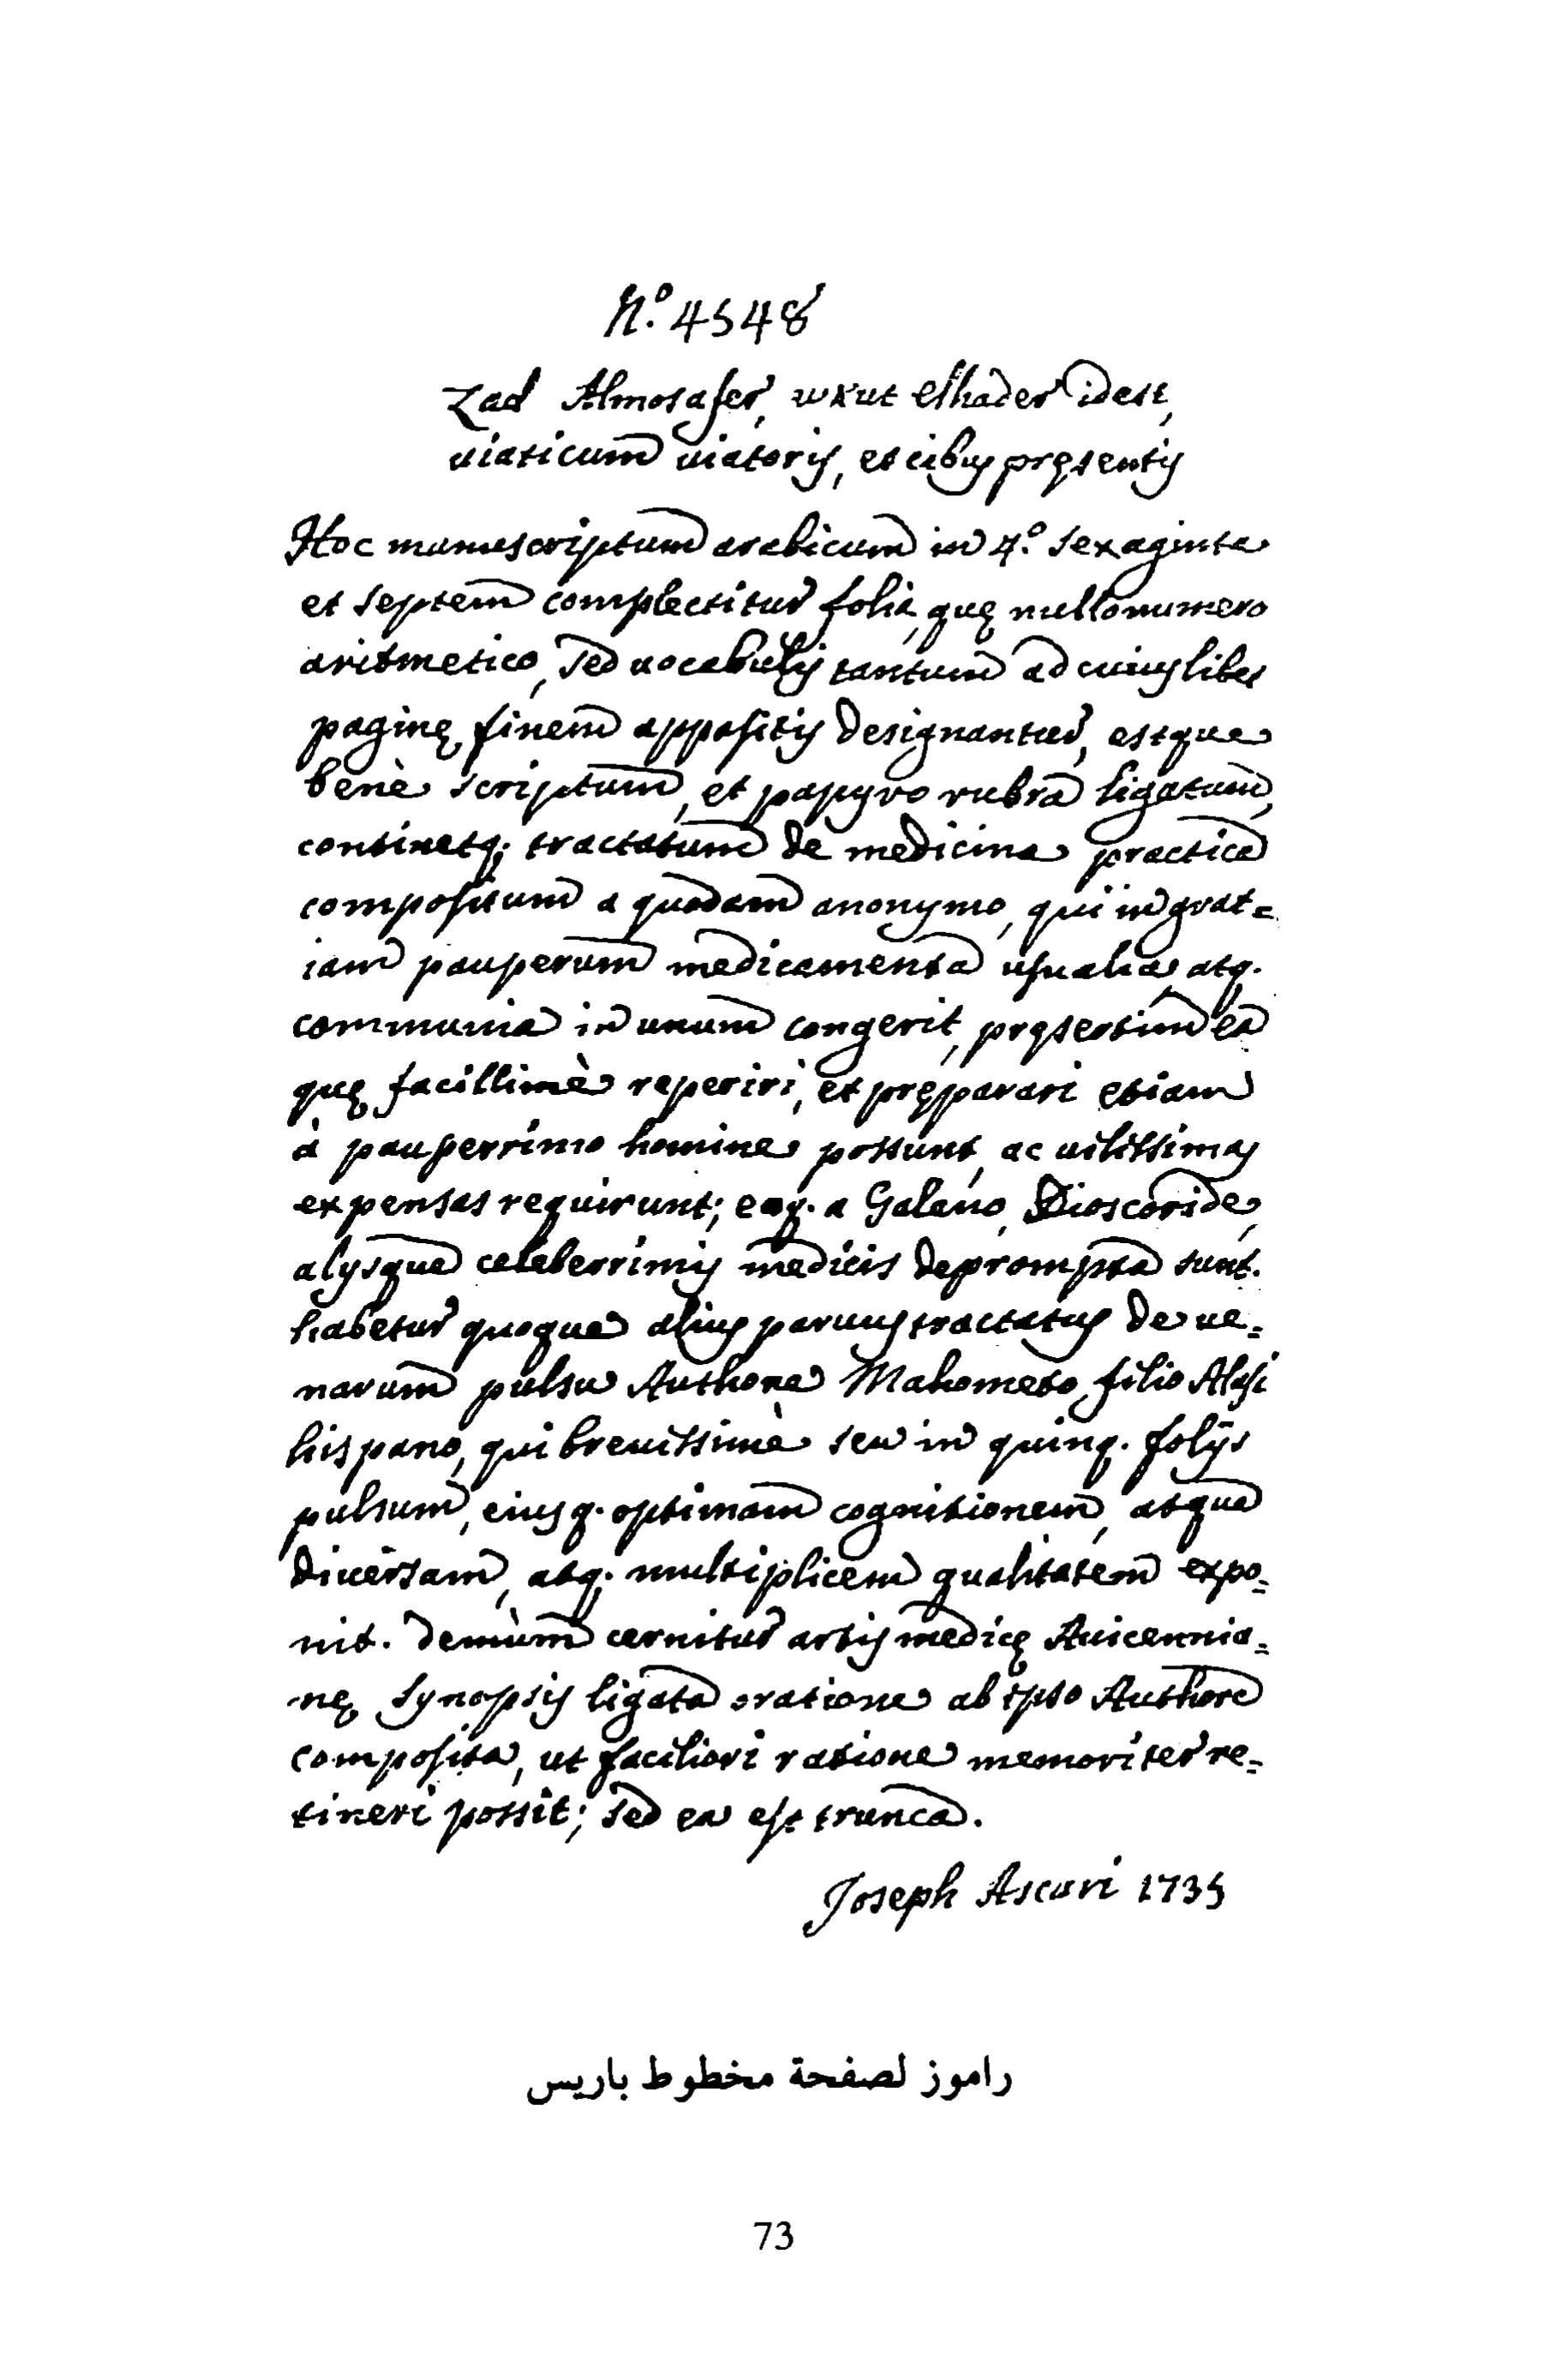 N.º 4548
Zad Almosafer, wxut elhader idest,
uiaticum uiatoris, et cibus pręsentis
Hoc manuscriptum arabicum in 4.º sexaginta
et septem complectitur folia, quę nullo numero
aritmetico, sed uocabulis tantum ad cuiuslibet
paginę finem appositis designantur, estque
benè scriptum, et papyro rubra ligatum,
continetq; tractatum de medicina practica
compositum a quodam anonymo, qui in grat=
iam pauperum medicamenta usualia, atq.
communia in unum congerit, pręsertim ea
quę facillimè reperiri, et pręparari etiam
à pauperrimo homine possunt, ac uilissimas
expensas requirunt; eaq. a Galeno, Dioscoride,
alysque celeberrimis medicis deprompta sunt.
habetur quoque alius paruus tractatus de ue=
narum pulsu Authore Mahometo filio Alasi
hispano, qui breuissimè seu in quinq. folijs
pulsum, eiusq. optimam cognitionem, atque
diuersam, atq. multiplicem qualitatem expo=
nit. demùm cernitur artis medicę Auicennia=
nę synopsis ligata oratione ab ipso Authore
composita, ut faciliori ratione memoriter re=
tineri possit; sed ea est trunca.
Joseph Ascari 1735
راموز لصفحة مخطوط باريس
73